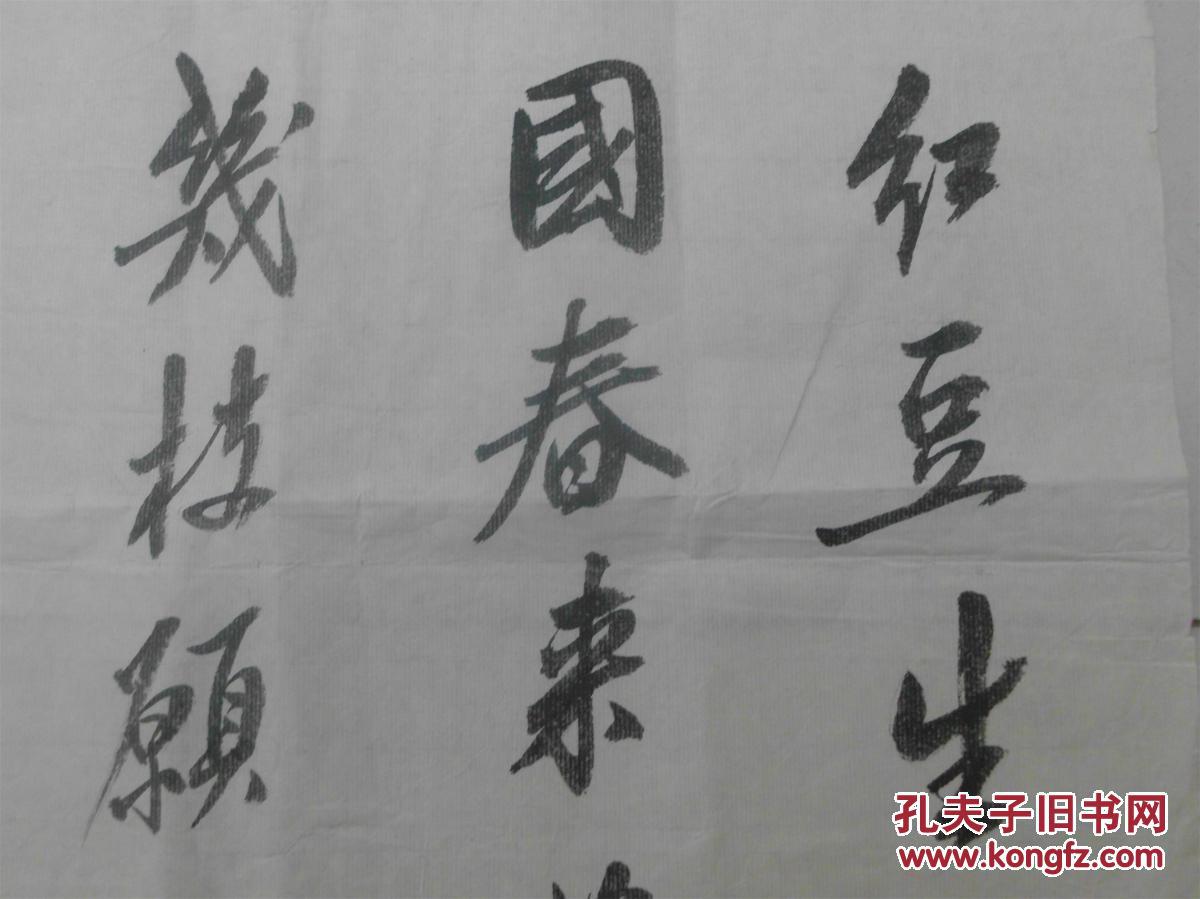 红豆生
國春来
幾枝願
孔夫子旧书网
www.kongfz.com